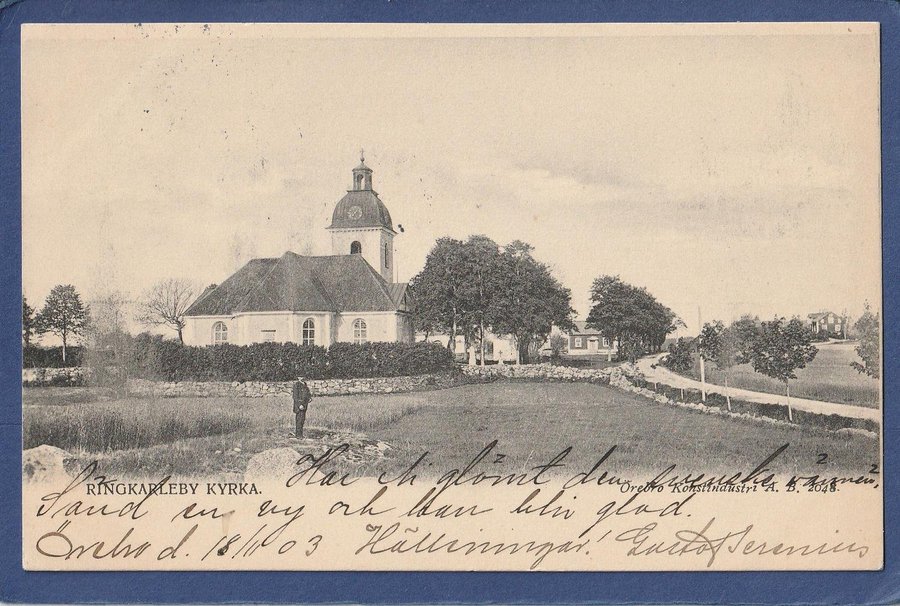 RINGKARLEBY KYRKA.
Örebro Konstindustri A. B. 2048.
Har Ni glömt den svenska vännen?
Sänd en vy och han blir glad.
Örebro d. 18/11 03 Hälsningar! Gustaf Serenius